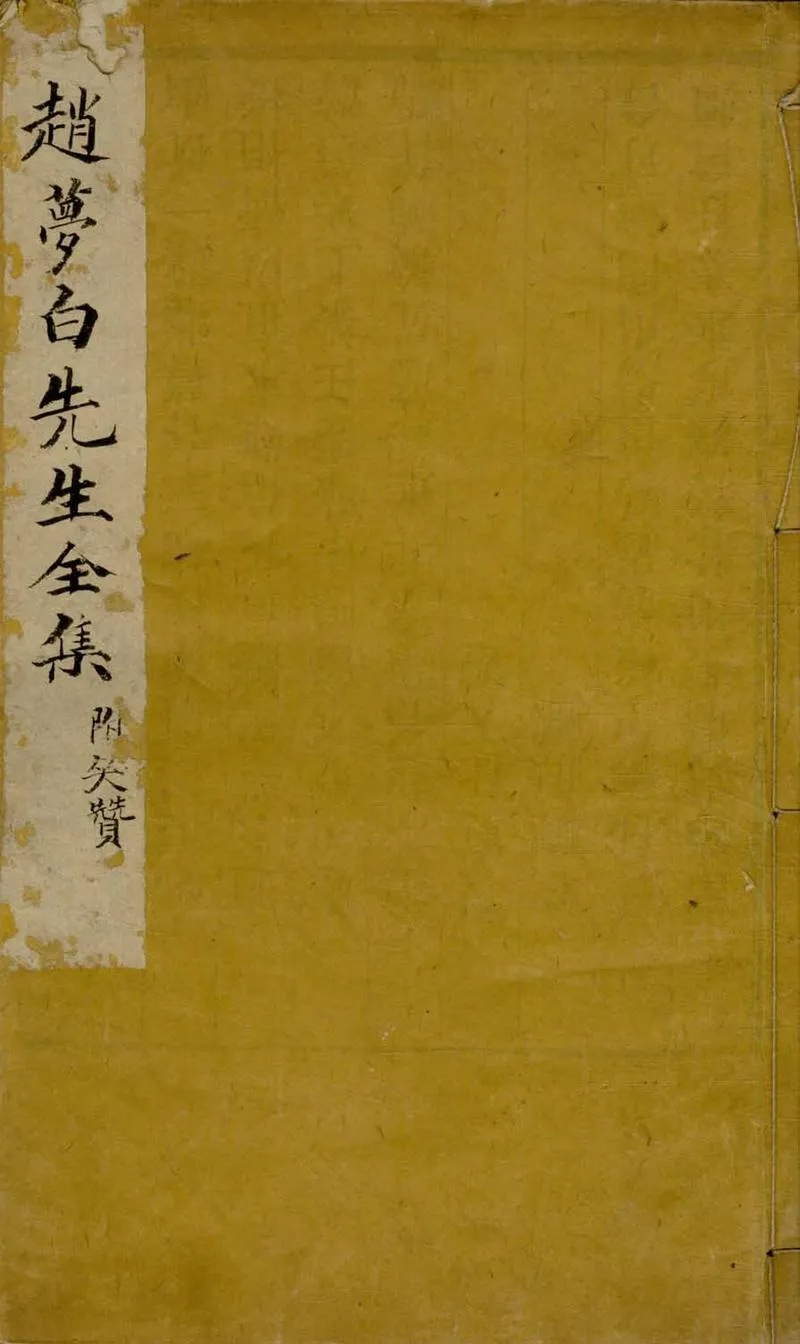 趙夢白先生全集
附笑贊